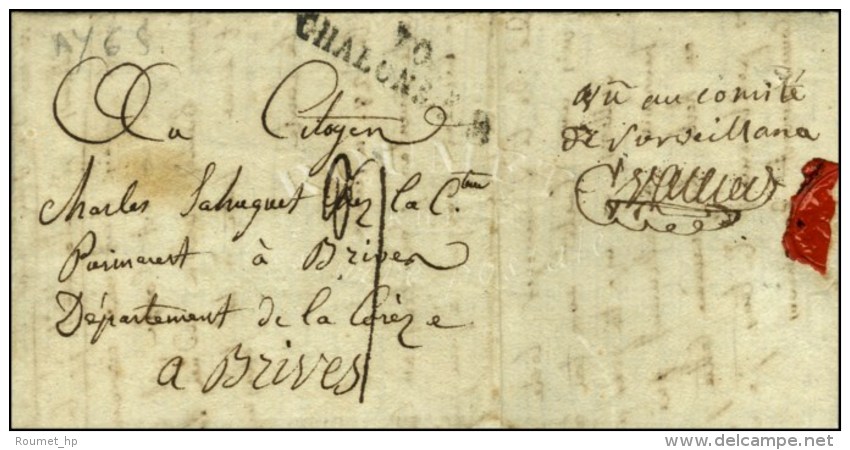 70
CHALONS
Au Citoyen
Charles Sahuguet chez la C.enne
à Brives
Département de la Corèze
a Brives
vû au comité
de Surveillance
Roumet_hp
delcampe.net